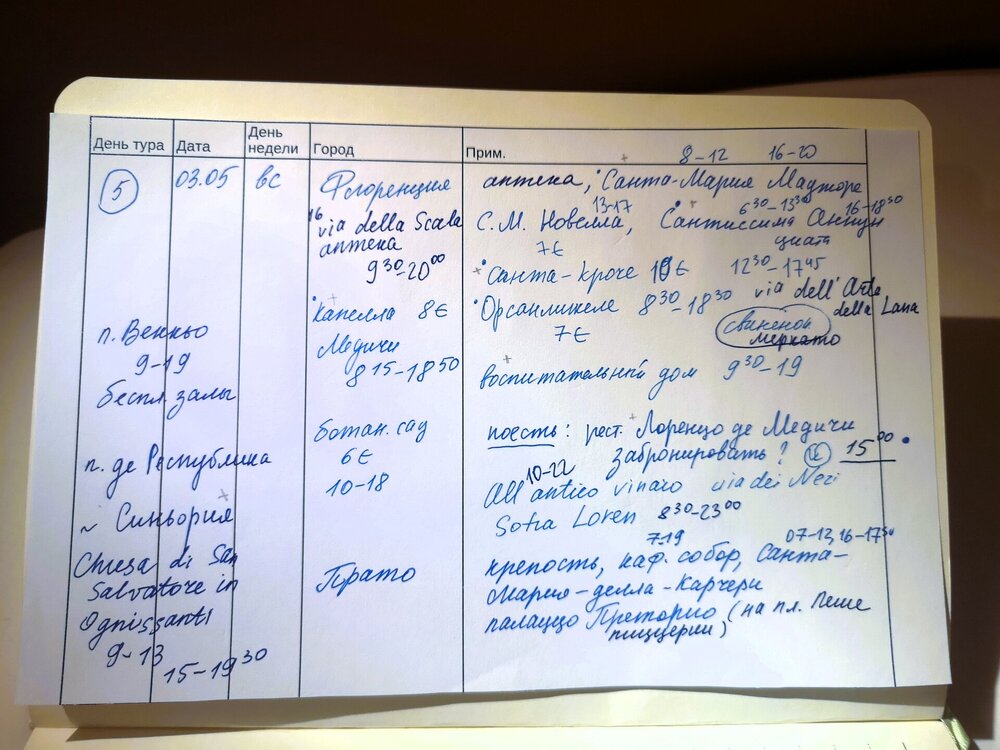 День тура Дата День недели Город Прим. 8-12 16-20
5 03.05 вс Флоренция аптека, Санта-Мария Маджоре
16 via della Scala
аптека
9 30-20 00
13-17 6 30-13 30 16-18 30
С.М. Новелла, Сантиссима Аннун
7€ циата
Санта-Кроче 10€ 12 30-17 45
Капелла 8€
Медичи
8 15-18 50
Орсанмикеле 8 30-18 30 via dell' Arte
7€ della Lana
свиненой
меркато
воспитательный дом 9 30-19
п. Веккьо
9-19
беспл. залы
ботан. сад
6€
10-18
поесть: рест. Лоренцо де Медичи
забронировать? 15 00
10-22
All'antico vinaio via dei Neri
Sofia Loren 8 30-23 00
п. де Республика
~ Синьория
Chiesa di San
Salvatore in
Ognissanti
9-13
15-19 30
Прато
7-19 07-13, 16-17 30
крепость, каф. собор, Санта-
Мария-делла-Карчери
палаццо Преторио (на пл. Пеше
пиццерии)